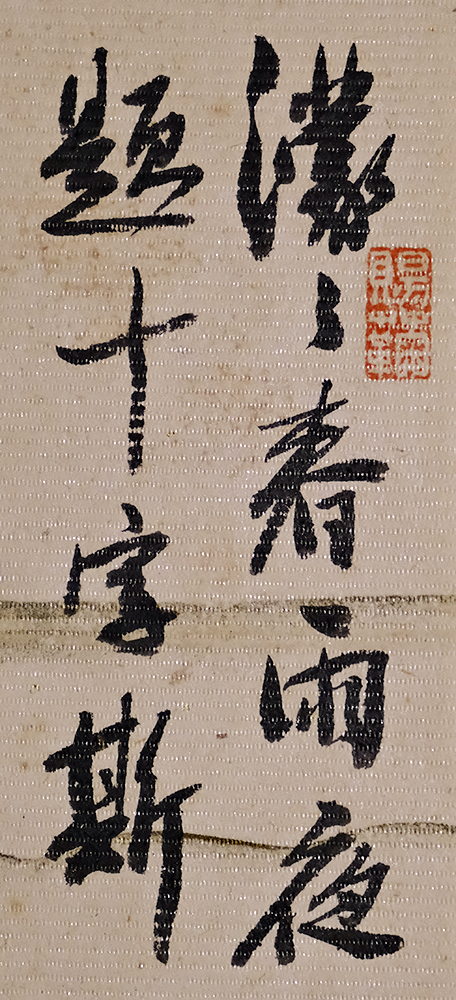 濛々春雨夜
題十字斯